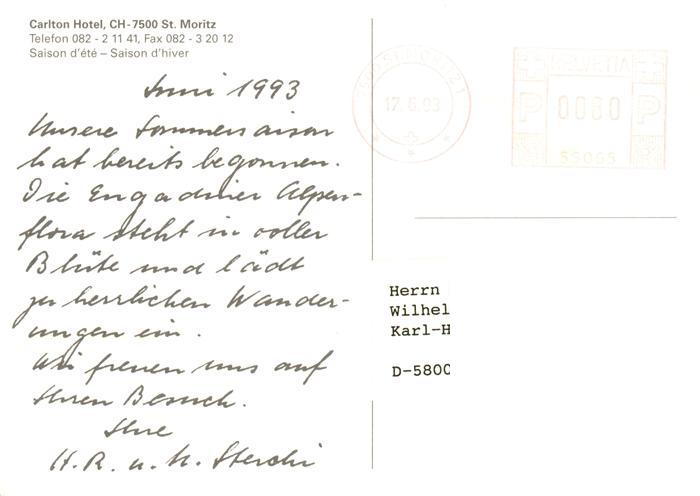 Carlton Hotel, CH-7500 St. Moritz
Telefon 082 - 2 11 41, Fax 082 - 3 20 12
Saison d'été – Saison d'hiver
Juni 1993
Unsere Sommersaison
hat bereits begonnen.
Die Engadiner Alpen-
flora steht in voller
Blüte und lädt
zu herrlichen Wander-
ungen ein.
Wir freuen uns auf
Ihren Besuch.
Ihre
H.R. u. M. Sterchi
7500 ST. MORITZ 1
17.6.93
HELVETIA
P 0080 P
55065
Herrn
Wilhel
Karl-H
D-5800